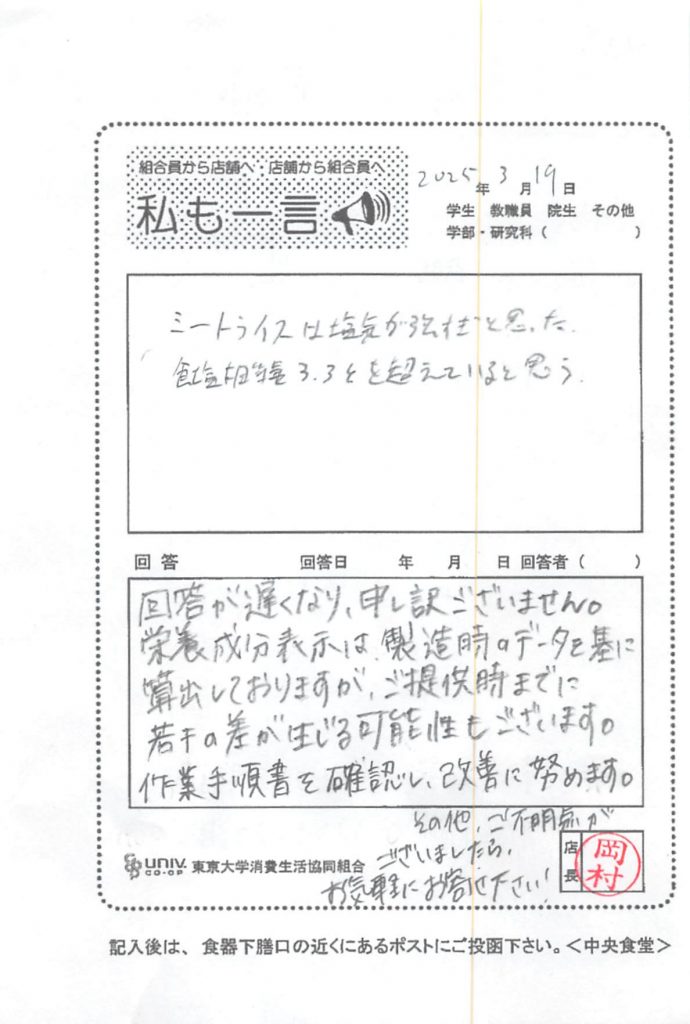 組合員から店舗へ・店舗から組合員へ
私も一言
2025年3月19日
学生 教職員 院生 その他
学部・研究科( )
ミートライスは塩気が強すぎと思った.
食塩相当量3.3gを超えていると思う.
回答 回答日 年 月 日 回答者( )
回答が遅くなり、申し訳ございません。
栄養成分表示は、製造時のデータを基に
算出しておりますが、ご提供時までに
若干の差が生じる可能性もございます。
作業手順書を確認し、改善に努めます。
その他、ご不明点が
ございましたら、
お気軽にお寄せ下さい!
UNIV. CO-OP 東京大学消費生活協同組合
店長
岡村
記入後は、食器下膳口の近くにあるポストにご投函下さい。<中央食堂>